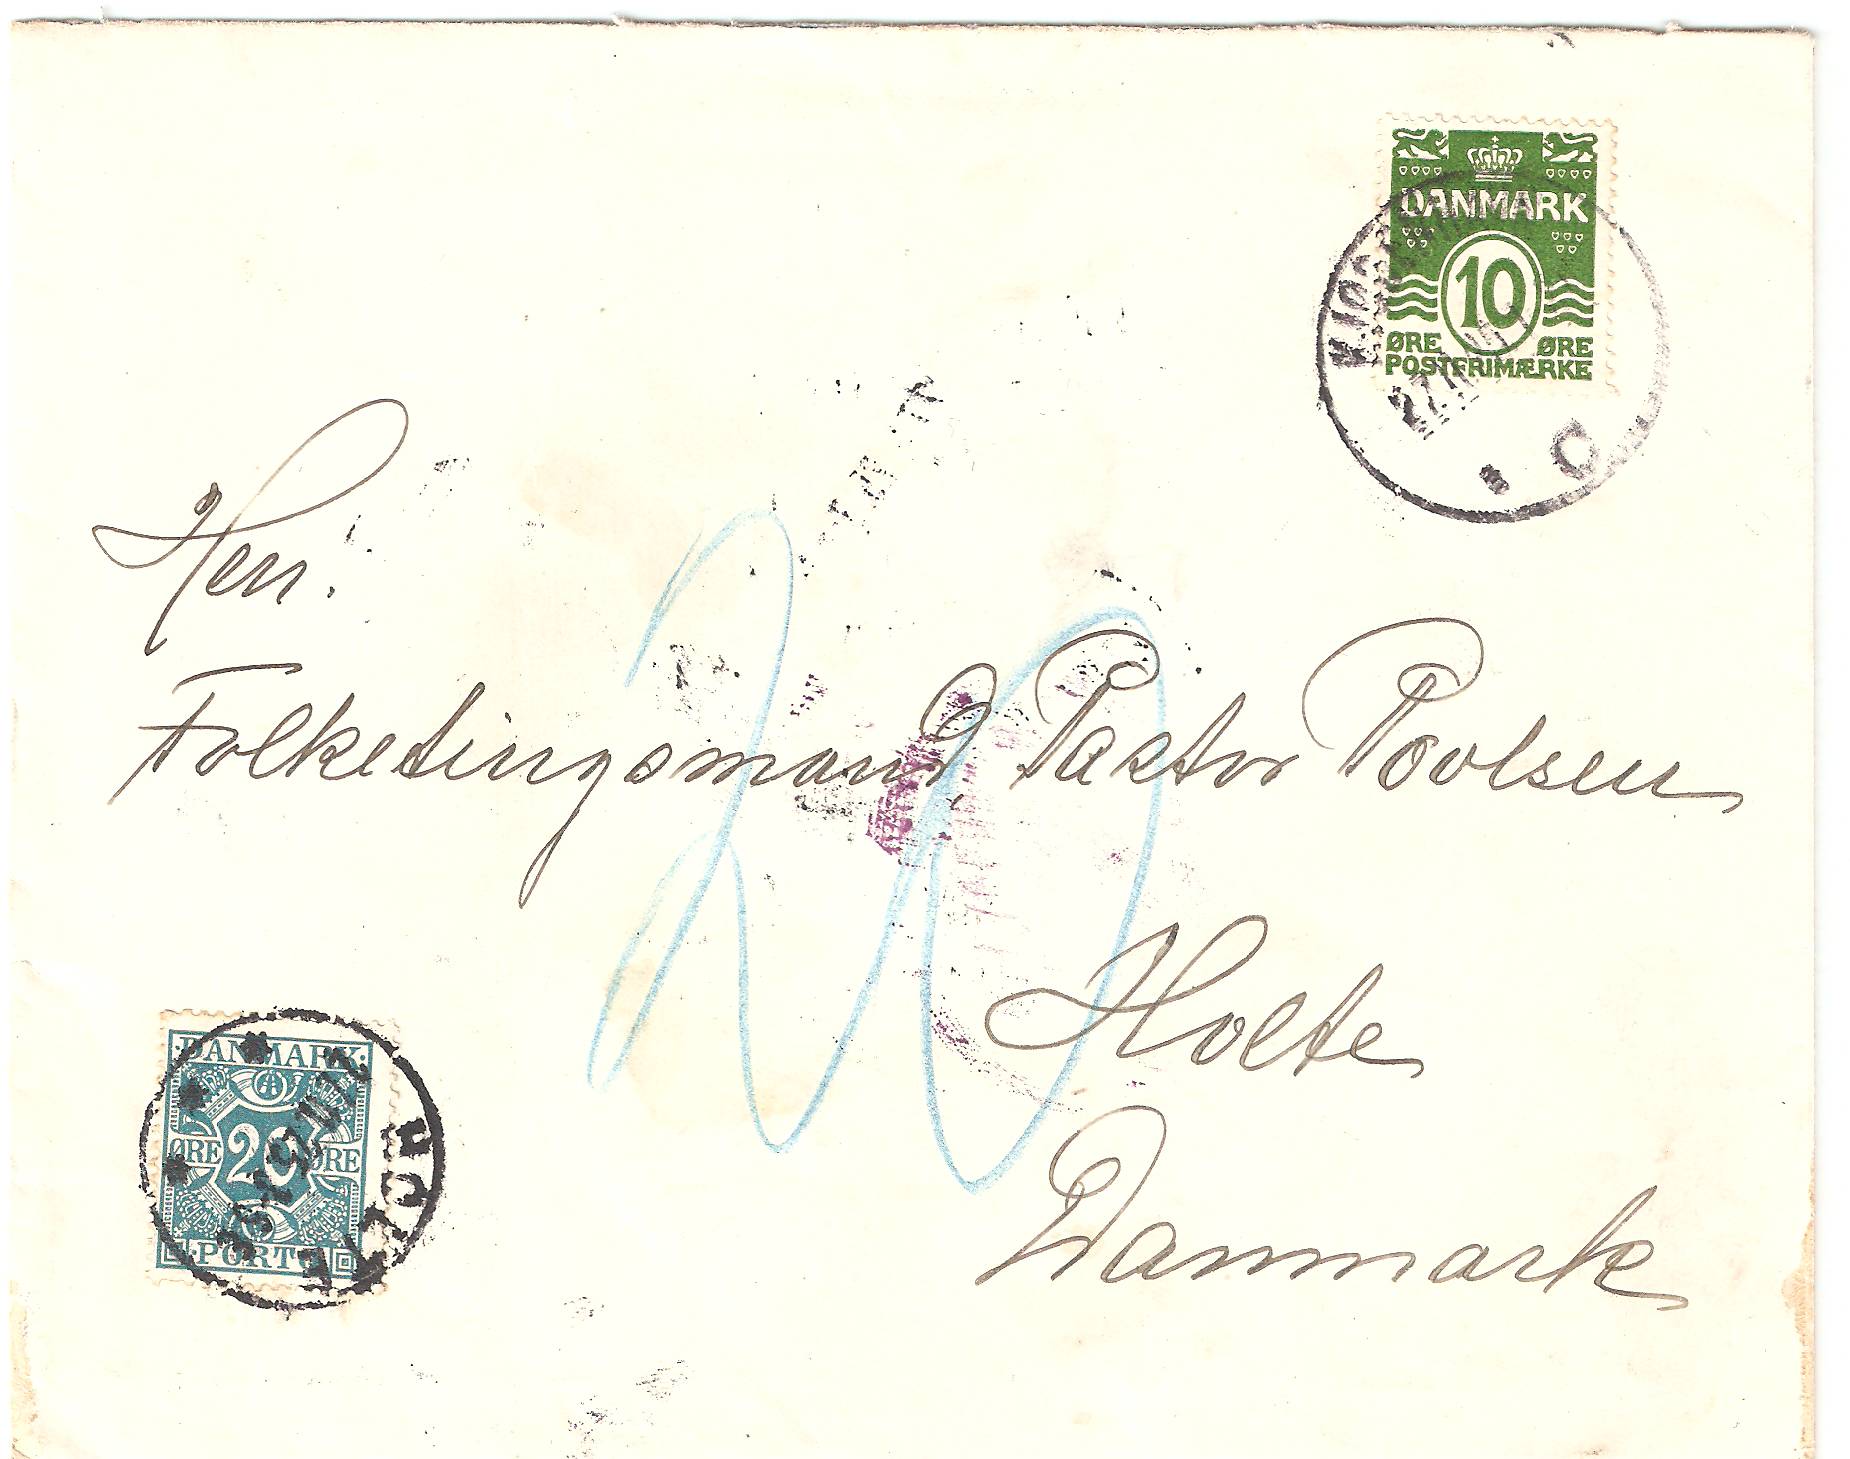 DANMARK
10
ØRE ØRE
POSTFRIMÆRKE
C
Herr.
Folketingsmand Pastor Povlsen
Holte
Danmark
20
DANMARK
ØRE 20 ØRE
PORTO
HOLTE